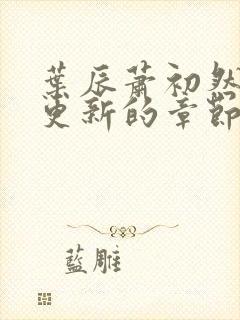 葉辰蕭初然
更新的章節
藍雕